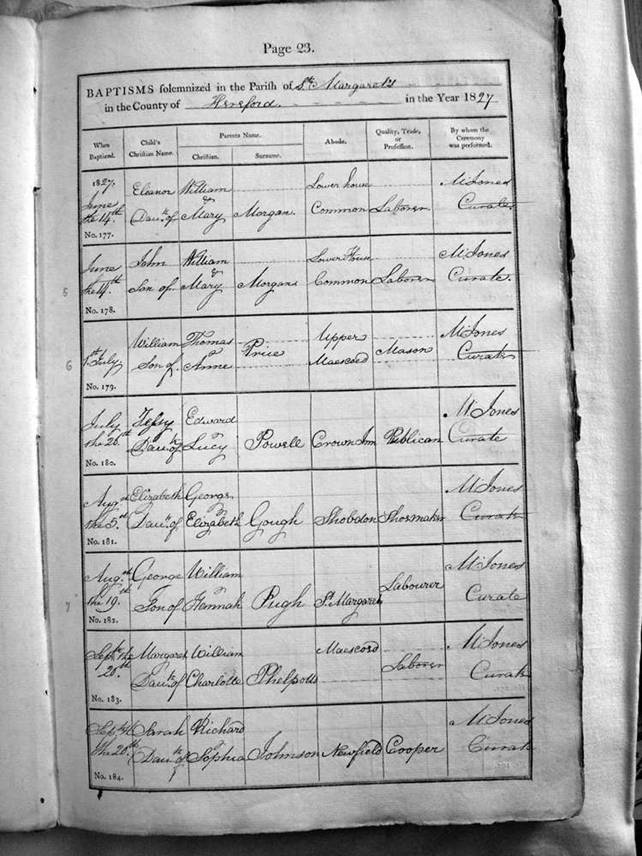 Page 23.
BAPTISMS solemnized in the Parish of St. Margarets
in the County of Hereford. in the Year 1827
When Baptized. Child's Christian Name. Parents Name. Christian. Surname. Abode. Quality, Trade, or Profession. By whom the Ceremony was performed.
1827. Eleanor William Lower house M. Jones
June the 14th Daur. of & Mary Morgan Common Laborer Curate
No. 177.
June John William Lower House M. Jones
the 14th Son of & Mary Morgans Common Laborer Curate.
No. 178.
William Thomas Upper M. Jones
1st July Son of & Anne Price Maescoed Mason Curate
No. 179.
July Edward M. Jones
the 20th Daur. of & Lucy Powell Crown Inn Publican Curate
No. 180.
Augst Elizabeth George M. Jones
the 5th Daur. of & Elizabeth Gough Shobdon Shoemaker Curate
No. 181.
Augst George William Labourer M. Jones
the 19th Son of & Hannah Pugh St. Margarets Curate
No. 182.
Septr. the Margaret William Maescoed M. Jones
20th Daur. of Charlotte Phelpotts Laborer Curate
No. 183.
Septr. Sarah Richard M. Jones
the 20th Daur. of & Sophia Johnson Newfield Cooper Curate
No. 184.
5
6
7